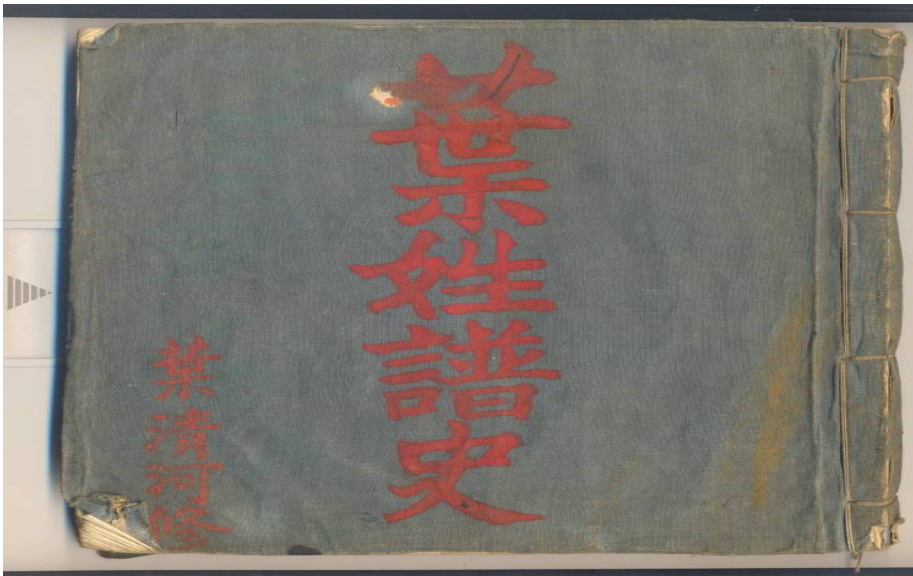 葉姓譜史
葉清河